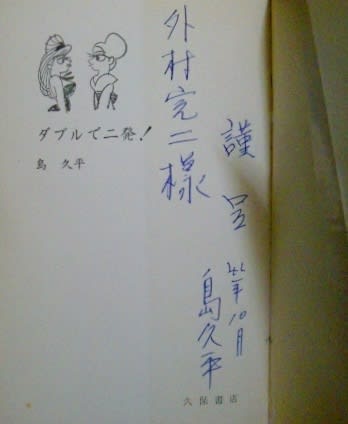 ダブルで二発!
島 久平
謹呈
外村完二様
41年10月
島久平
久保書店